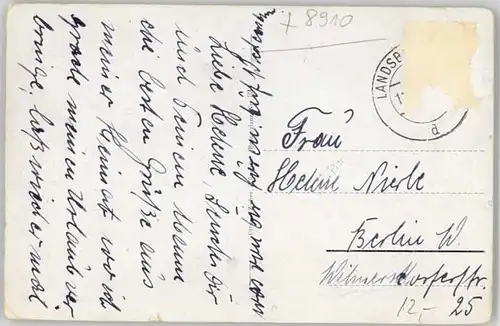 7 8910
LANDSB
Frau
Helene Nierle
Berlin W.
Wilmersdorferstr.
12.- 25
Liebe Helene, sende Dir
und Deinem Mann
die besten Grüße aus
meiner Heimat wo ich
grade meinen Urlaub ver
bringe, laß wieder mal